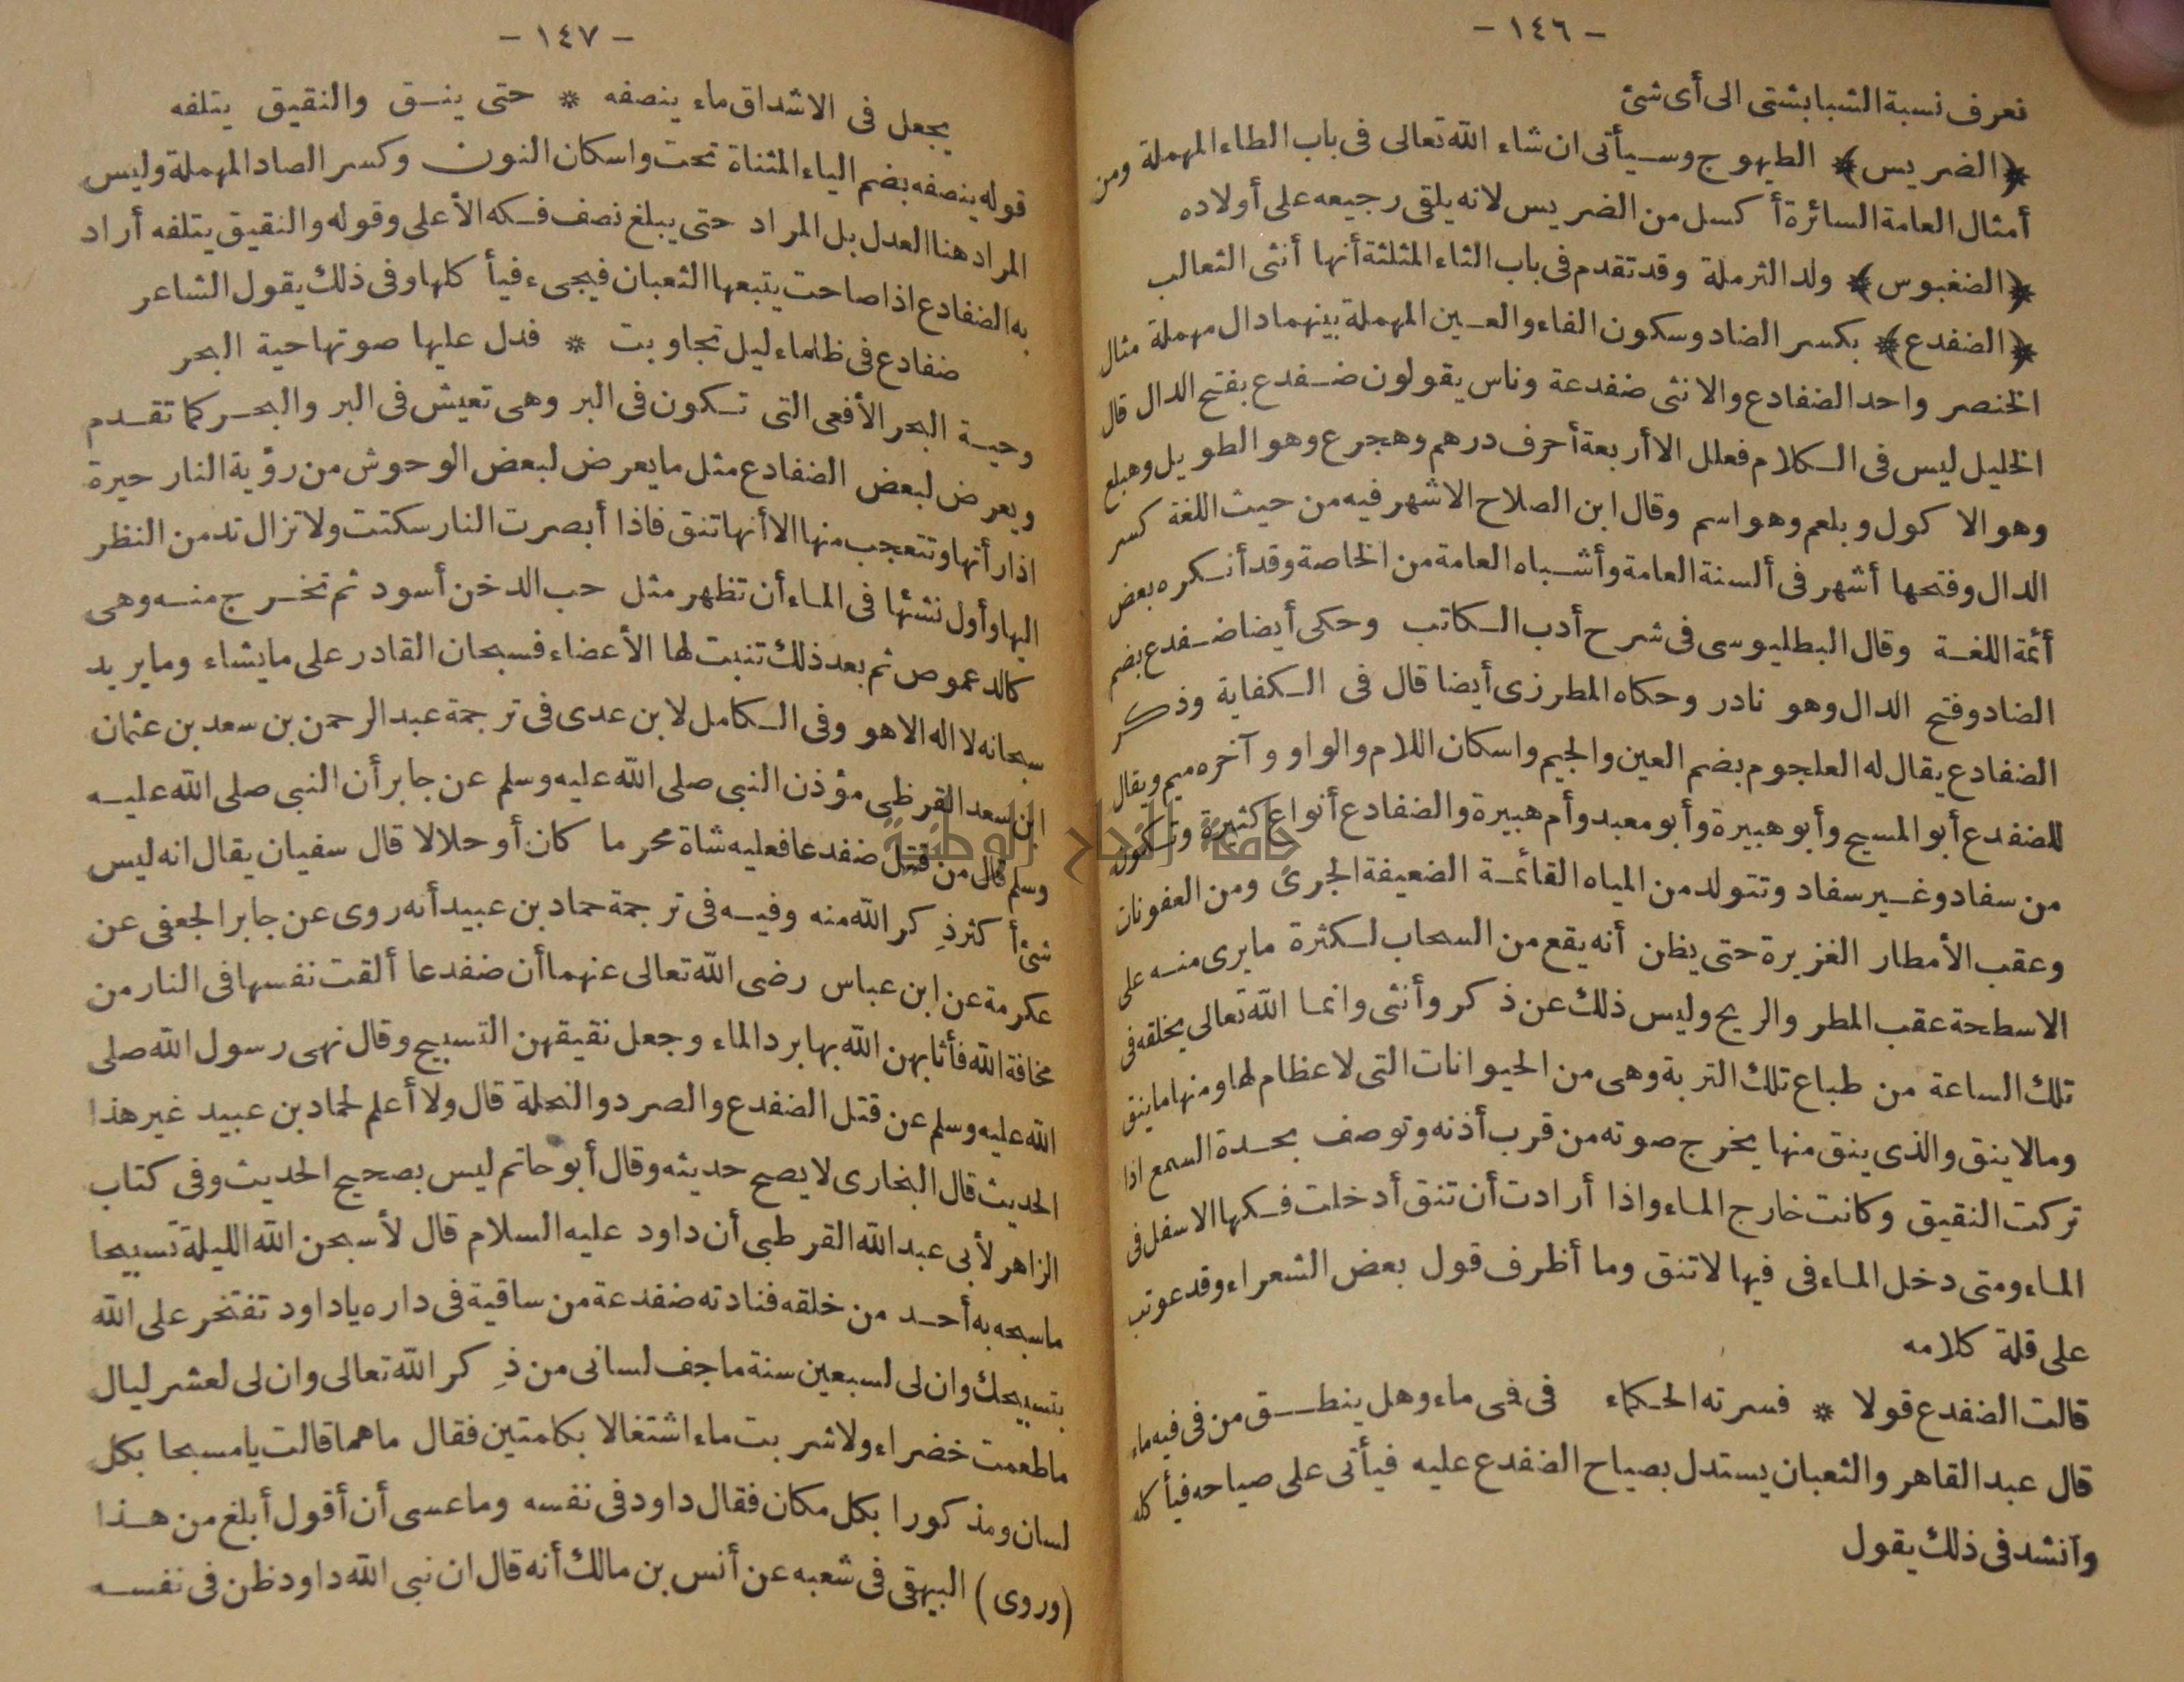 – ١٤٦ –
نعرف نسبة الشبابشتى الى أى شئ
﴿الضريس﴾ الطيهوج وسيأتى ان شاء الله تعالى فى باب الطاء المهملة ومن
أمثال العامة السائرة أكسل من الضريس لانه يلقى رجيعه على أولاده
﴿الضغبوس﴾ ولد الثرملة وقد تقدم فى باب الثاء المثلثة أنها أنثى الثعالب
﴿الضفدع﴾ بكسر الضاد وسكون الفاء والعين المهملة بينهما دال مهملة مثال
الخنصر واحد الضفادع والانثى ضفدعة وناس يقولون ضفدع بفتح الدال قال
الخليل ليس فى الكلام فعلل الا أربعة أحرف درهم وهجرع وهو الطويل وهبلع
وهو الاكول وبلعم وهو اسم وقال ابن الصلاح الاشهر فيه من حيث اللغة كسر
الدال وفتحها أشهر فى ألسنة العامة وأشباه العامة من الخاصة وقد أنكره بعض
أئمة اللغة وقال البطليوسى فى شرح أدب الكاتب وحكى أيضا ضفدع بضم
الضاد وفتح الدال وهو نادر وحكاه المطرزى أيضا قال فى الكفاية وذكر
الضفادع يقال له العلجوم بضم العين والجيم واسكان اللام والواو وآخره ميم ويقال
للضفدع أبو المسيح وأبو هبيرة وأبو معبد وأم هبيرة والضفادع أنواع كثيرة وتكون
من سفاد وغير سفاد وتتولد من المياه القائمة الضعيفة الجرى ومن العفونات
وعقب الأمطار الغزيرة حتى يظن أنه يقع من السحاب لكثرة ما يرى منه على
الاسطحة عقب المطر والريح وليس ذلك عن ذكر وأنثى وانما الله تعالى يخلقه فى
تلك الساعة من طباع تلك التربة وهى من الحيوانات التى لا عظام لها ومنها ما ينق
وما لا ينق والذى ينق منها يخرج صوته من قرب أذنه وتوصف بحدة السمع اذا
تركت النقيق وكانت خارج الماء واذا أرادت أن تنق أدخلت فكها الاسفل فى
الماء ومتى دخل الماء فى فيها لا تنق وما أظرف قول بعض الشعراء وقد عوتب
على قلة كلامه
قالت الضفدع قولا * فسرته الحكماء فى فى ماء وهل ينطق من فى فيه ماء
قال عبد القاهر والثعبان يستدل بصياح الضفدع عليه فيأتى على صياحه فيأكله
وأنشد فى ذلك يقول
– ١٤٧ –
يجعل فى الاشداق ماء ينصفه * حتى ينق والنقيق يتلفه
قوله ينصفه بضم الياء المثناة تحت واسكان النون وكسر الصاد المهملة وليس
المراد هنا العدل بل المراد حتى يبلغ نصف فكه الأعلى وقوله والنقيق يتلفه أراد
به الضفادع اذا صاحت يتبعها الثعبان فيجىء فيأكلها وفى ذلك يقول الشاعر
ضفادع فى ظلماء ليل تجاوبت * فدل عليها صوتها حية البحر
وحية البحر الأفعى التى تكون فى البر وهى تعيش فى البر والبحر كما تقدم
ويعرض لبعض الضفادع مثل ما يعرض لبعض الوحوش من رؤية النار حيرة
اذا رأتها وتتعجب منها الا أنها تنق فاذا أبصرت النار سكتت ولا تزال تدمن النظر
اليها وأول نشئها فى الماء أن تظهر مثل حب الدخن أسود ثم تخرج منه وهى
كالدعموص ثم بعد ذلك تنبت لها الأعضاء فسبحان القادر على ما يشاء وما يريد
سبحانه لا اله الا هو وفى الكامل لابن عدى فى ترجمة عبد الرحمن بن سعد بن عثمان
ابن سعد القرظى مؤذن النبى صلى الله عليه وسلم عن جابر أن النبى صلى الله عليه
وسلم قال من قتل ضفدعا فعليه شاة محرما كان أو حلالا قال سفيان يقال انه ليس
شئ أكثر ذِكر الله منه وفيه فى ترجمة حماد بن عبيد أنه روى عن جابر الجعفى عن
عكرمة عن ابن عباس رضى الله تعالى عنهما أن ضفدعا ألقت نفسها فى النار من
مخافة الله فأثابهن الله بها برد الماء وجعل نقيقهن التسبيح وقال نهى رسول الله صلى
الله عليه وسلم عن قتل الضفدع والصرد والنحلة قال ولا أعلم لحماد بن عبيد غير هذا
الحديث قال البخارى لا يصح حديثه وقال أبو حاتم ليس بصحيح الحديث وفى كتاب
الزاهر لأبى عبد الله القرطبى أن داود عليه السلام قال لأسبحن الله الليلة تسبيحا
ما سبحه به أحد من خلقه فنادته ضفدعة من ساقية فى داره يا داود تفتخر على الله
بتسبيحك وان لى لسبعين سنة ما جف لسانى من ذِكر الله تعالى وان لى لعشر ليال
ما طعمت خضراء ولا شربت ماء اشتغالا بكلمتين فقال ما هما قالت يا مسبحا بكل
لسان ومذكورا بكل مكان فقال داود فى نفسه وما عسى أن أقول أبلغ من هذا
(وروى) البيهقى فى شعبه عن أنس بن مالك أنه قال ان نبى الله داود ظن فى نفسه
جامعة النجاح الوطنية